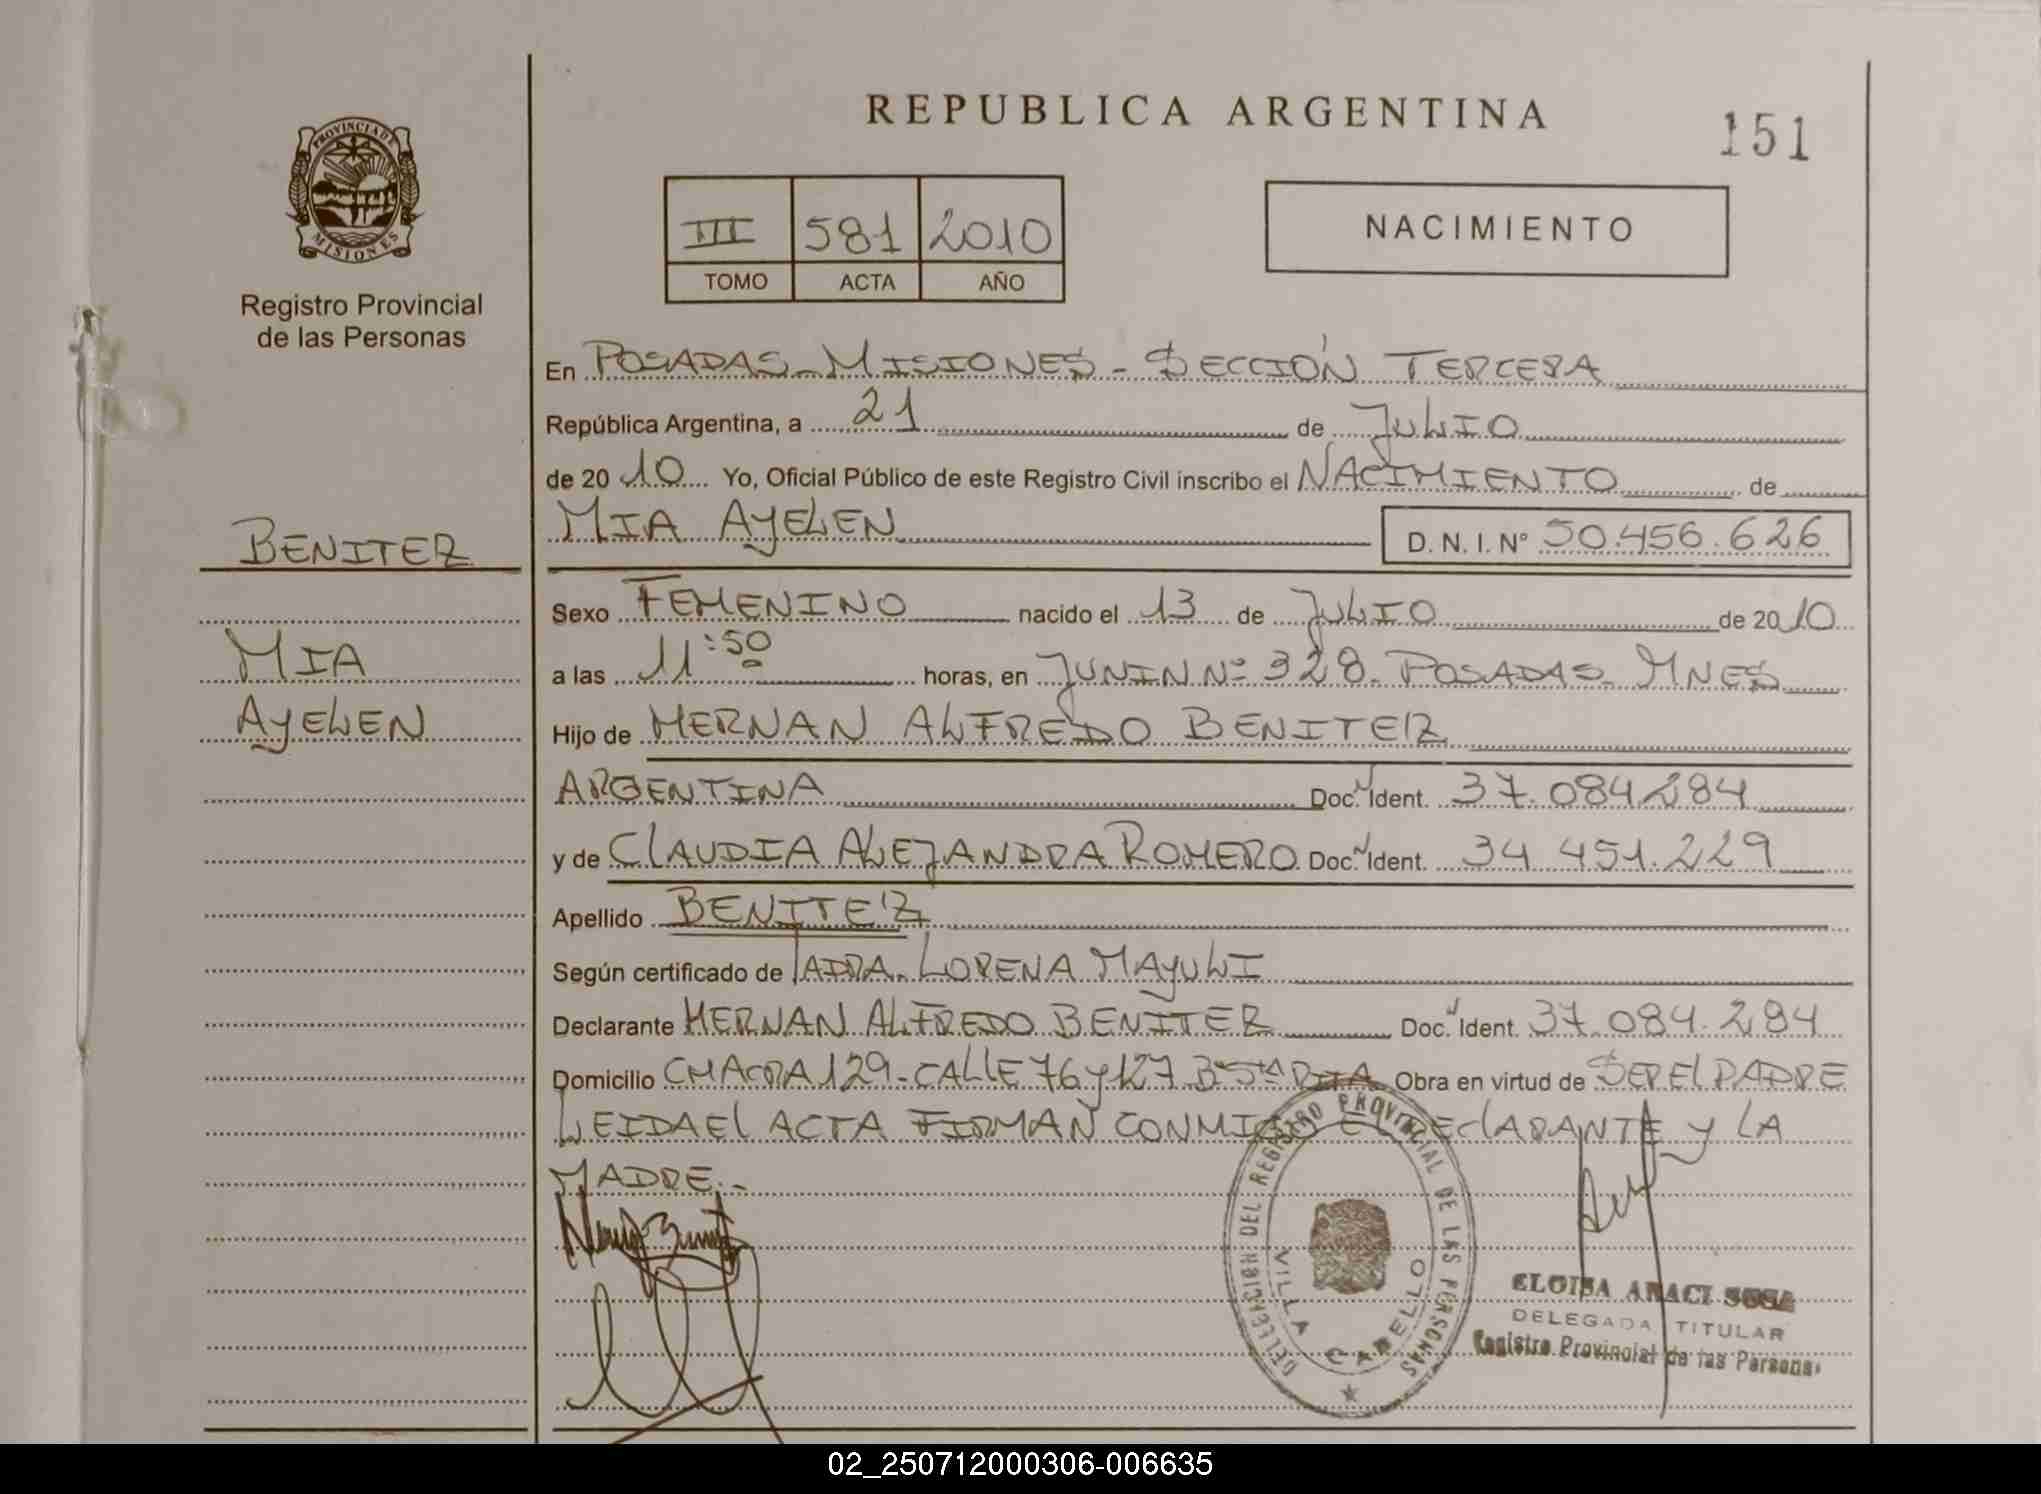 REPUBLICA ARGENTINA
151
PROVINCIA DE MISIONES
Registro Provincial
de las Personas
III 581 2010
TOMO ACTA AÑO
NACIMIENTO
En POSADAS - MISIONES - SECCIÓN TERCERA
República Argentina, a 21 de JULIO
de 2010 Yo, Oficial Público de este Registro Civil inscribo el NACIMIENTO de
MIA AYELEN D. N. I. Nº 50.456.626
BENITEZ
MIA
AYELEN
Sexo FEMENINO nacido el 13 de JULIO de 2010
a las 11:50 horas, en JUNIN Nº 328 - POSADAS - MNES
Hijo de HERNAN ALFREDO BENITEZ
ARGENTINA Doc. Ident. 37.084.284
y de CLAUDIA ALEJANDRA ROMERO Doc. Ident. 34.451.229
Apellido BENITEZ
Según certificado de LORENA MAYULI
Declarante HERNAN ALFREDO BENITEZ Doc. Ident. 37.084.284
Domicilio CHACRA 129 - CALLE 76 Y 127 Bº STA RITA Obra en virtud de SER EL PADRE
LEIDA EL ACTA FIRMAN CONMIGO EL DECLARANTE Y LA
MADRE.-
DELEGACION DEL REGISTRO PROVINCIAL DE LAS PERSONAS
VILLA CABELLO
ELOISA ARACI SOSA
DELEGADA TITULAR
Registro Provincial de las Personas
02_250712000306-006635